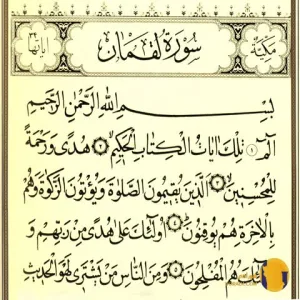 مكية سورة لقمان آياتها ٣٤
بسم الله الرحمن الرحيم
الم ۝١ تلك آيات الكتاب الحكيم ۝٢ هدى ورحمة
للمحسنين ۝٣ الذين يقيمون الصلوة ويؤتون الزكوة وهم
بالآخرة هم يوقنون ۝٤ أولئك على هدى من ربهم و
أولئك هم المفلحون ۝٥ ومن الناس من يشترى لهو الحديث